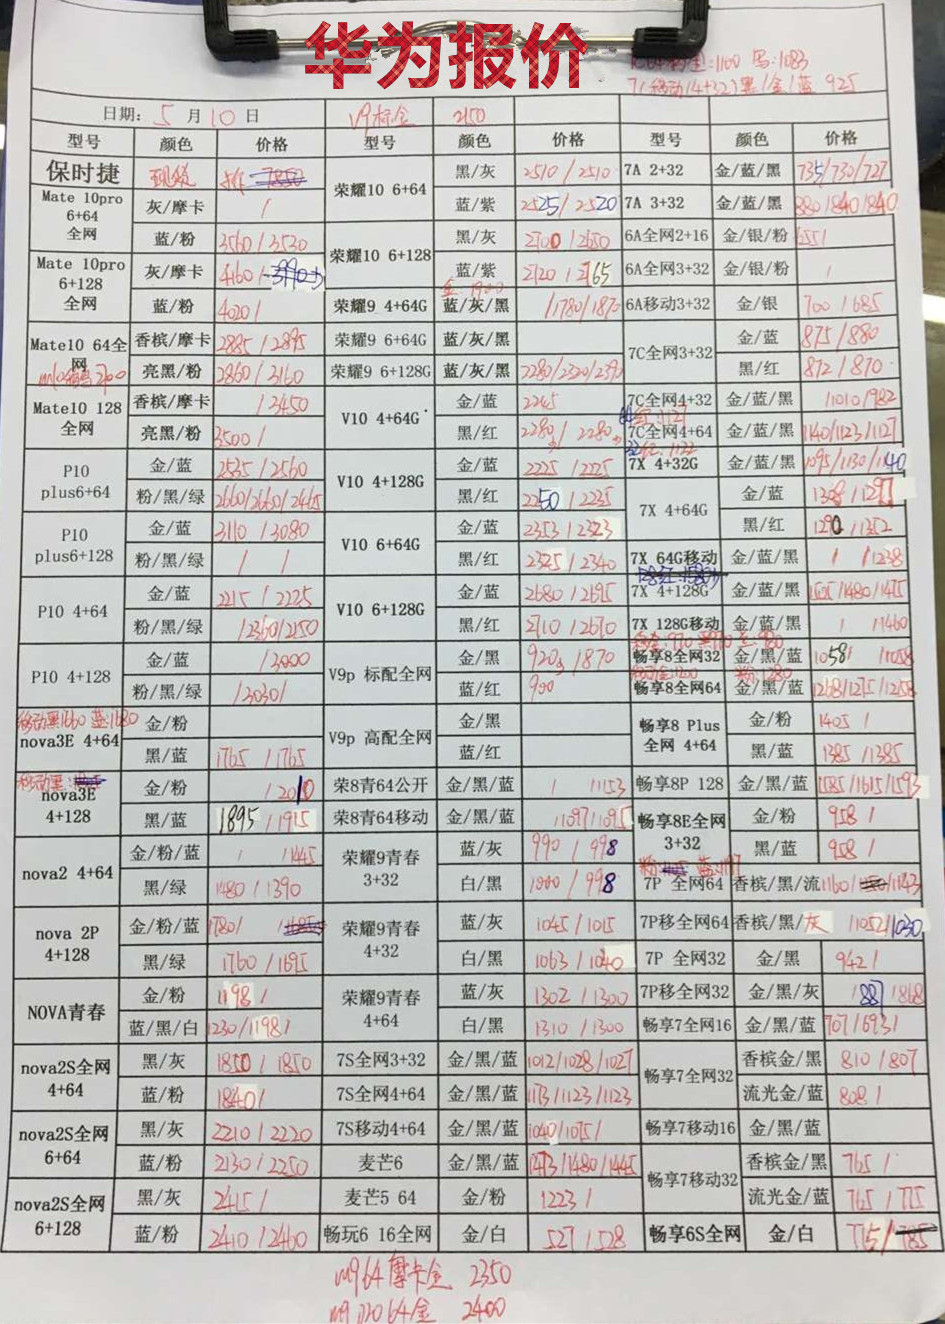 华为报价
7C移动(4+32)黑/金/蓝 925
日期: 5 月 10 日 V9标金 2150
型号 颜色 价格 型号 颜色 价格 型号 颜色 价格
保时捷 荣耀10 6+64 黑/灰 2510/2510 7A 2+32 金/蓝/黑 735/730/727
Mate 10pro 6+64 全网 灰/摩卡 / 蓝/紫 2525/2520 7A 3+32 金/蓝/黑 880/840/840
蓝/粉 3560/3520 荣耀10 6+128 黑/灰 2700/2680 6A全网2+16 金/银/粉 655/
Mate 10pro 6+128 全网 灰/摩卡 4160/ 蓝/紫 2720/2765 6A全网3+32 金/银/粉 /
金:1900
蓝/粉 4020/ 荣耀9 4+64G 蓝/灰/黑 /1780/1870 6A移动3+32 金/银 700/685
Mate10 64全网 香槟/摩卡 2885/2895 荣耀9 6+64G 蓝/灰/黑 7C全网3+32 金/蓝 875/880
亮黑/粉 2860/3160 荣耀9 6+128G 蓝/灰/黑 2280/2320/2390 黑/红 872/870
Mate10 128全网 香槟/摩卡 /3450 V10 4+64G 金/蓝 2245 7C全网4+32 金/蓝/黑 1010/982
亮黑/粉 3500/ 黑/红 2280/2280 7C全网4+64 金/蓝/黑 1140/1123/1127
P10 plus6+64 金/蓝 2535/2560 V10 4+128G 金/蓝 2225/2225 7X 4+32G 金/蓝/黑 1095/1130/1140
粉/黑/绿 2660/2660/2465 黑/红 2250/2235 7X 4+64G 金/蓝
P10 plus6+128 金/蓝 3110/3080 V10 6+64G 金/蓝 2353/2323 黑/红 1290/1352
粉/黑/绿 / / 黑/红 2325/2340 7X 64G移动 金/蓝/黑 / /1238
P10 4+64 金/蓝 2215/2225 V10 6+128G 金/蓝 2680/2695 7X 4+128G 金/蓝/黑 1505/1480/1475
粉/黑/绿 /2360/2150 黑/红 2710/2670 7X 128G移动 金/蓝/黑 / /1460
P10 4+128 金/蓝 /3000 V9p 标配全网 金/黑 920/870 畅享8全网32 金/黑/蓝 1058/ /1058
粉/黑/绿 /3030/ 蓝/红 900 畅享8全网64 金/黑/蓝 1268/1275/1258
移动黑1660 蓝:1680
nova3E 4+64 金/粉 V9p 高配全网 金/黑 畅享8 Plus 全网 4+64 金/粉 1405/
黑/蓝 1765/1765 蓝/红 黑/蓝 1385/1385
移动黑:
nova3E 4+128 金/粉 /2010 荣8青64公开 金/黑/蓝 / /1153 畅享8P 128 金/黑/蓝 1585/1615/1593
黑/蓝 1895/1915 荣8青64移动 金/黑/蓝 1097/1095 畅享8E全网 3+32 金/粉 958/
nova2 4+64 金/粉/蓝 / /1445 荣耀9青春 3+32 蓝/灰 990/998 黑/蓝 958/
黑/绿 1480/1390 白/黑 1000/998 7P 全网64 香槟/黑/流 1160/ /1143
nova 2P 4+128 金/粉/蓝 1780/ 荣耀9青春 4+32 蓝/灰 1045/1015 7P移全网64 香槟/黑/灰 /1052/1030
黑/绿 1760/1695 白/黑 1063/1040 7P 全网32 金/黑 942/
NOVA青春 金/粉 1198/ 荣耀9青春 4+64 蓝/灰 1302/1300 7P移全网32 金/黑/灰 /887/868
蓝/黑/白 1230/1198/ 白/黑 1310/1300 畅享7全网16 金/黑/蓝 707/693/
nova2S全网 4+64 黑/灰 1850/1850 7S全网3+32 金/黑/蓝 1012/1028/1027 畅享7全网32 香槟金/黑 810/807
蓝/粉 1840/ 7S全网4+64 金/黑/蓝 1113/1123/1123 流光金/蓝 808/
nova2S全网 6+64 黑/灰 2210/2220 7S移动4+64 金/黑/蓝 1040/1075/ 畅享7移动16 金/黑/蓝
蓝/粉 2130/2250 麦芒6 金/黑/蓝 1473/1480/1445 畅享7移动32 香槟金/黑 765/
nova2S全网 6+128 黑/灰 2415/ 麦芒5 64 金/粉 1223/ 流光金/蓝 765/775
蓝/粉 2410/2460 畅玩6 16全网 金/白 527/528 畅享6S全网 金/白 775/785
m9 64摩卡金 2350
2400